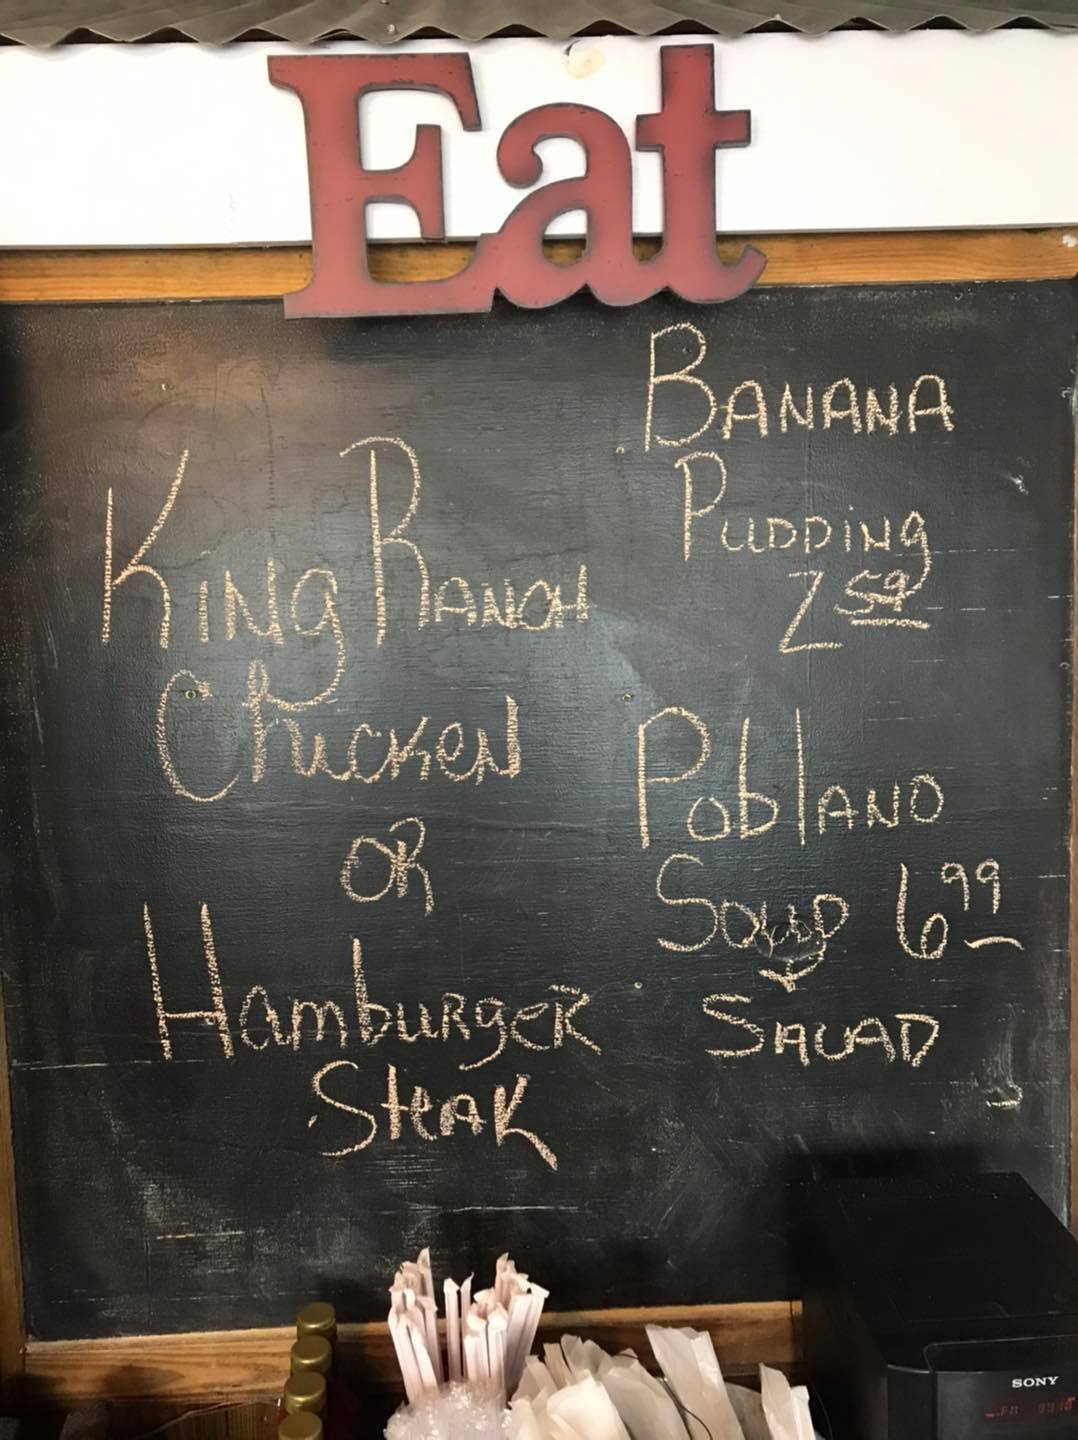 Eat
King Ranch
Chicken
OR
Hamburger
Steak
Banana
Pudding
2.59
Poblano
Soup 6.99
Salad
SONY